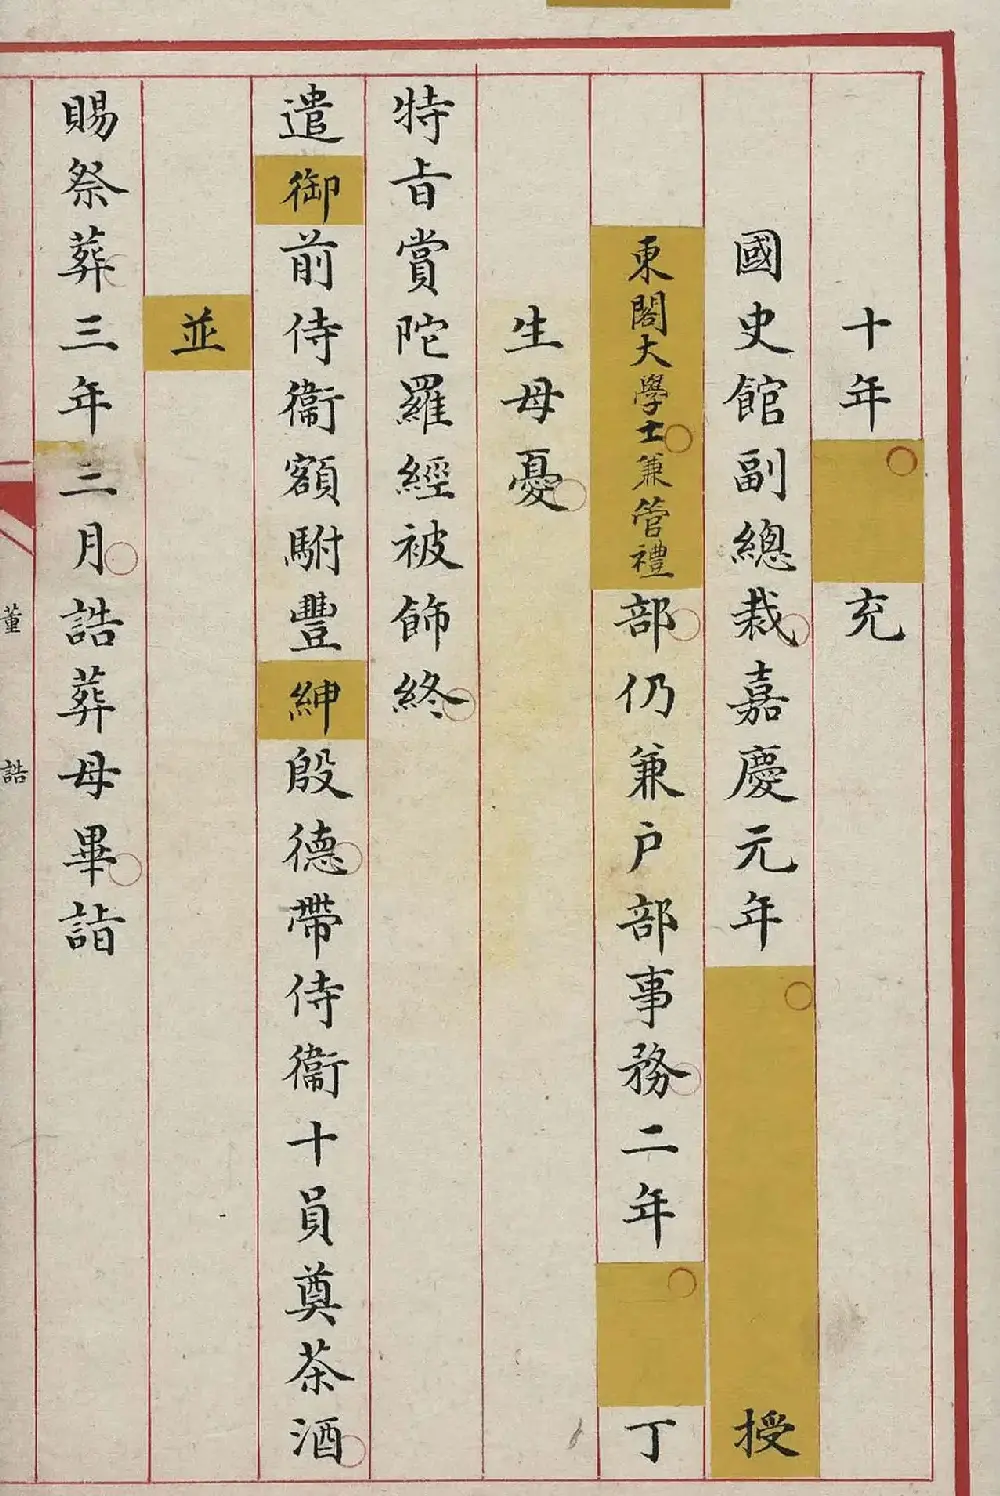 十年充
國史館副總裁嘉慶元年授
東閣大學士兼管禮部仍兼户部事務二年丁
生母憂
特旨賞陀羅經被飾終
遣御前侍衞額駙豐紳殷德帶侍衞十員奠茶酒
並
賜祭葬三年三月誥葬母畢詣
董誥